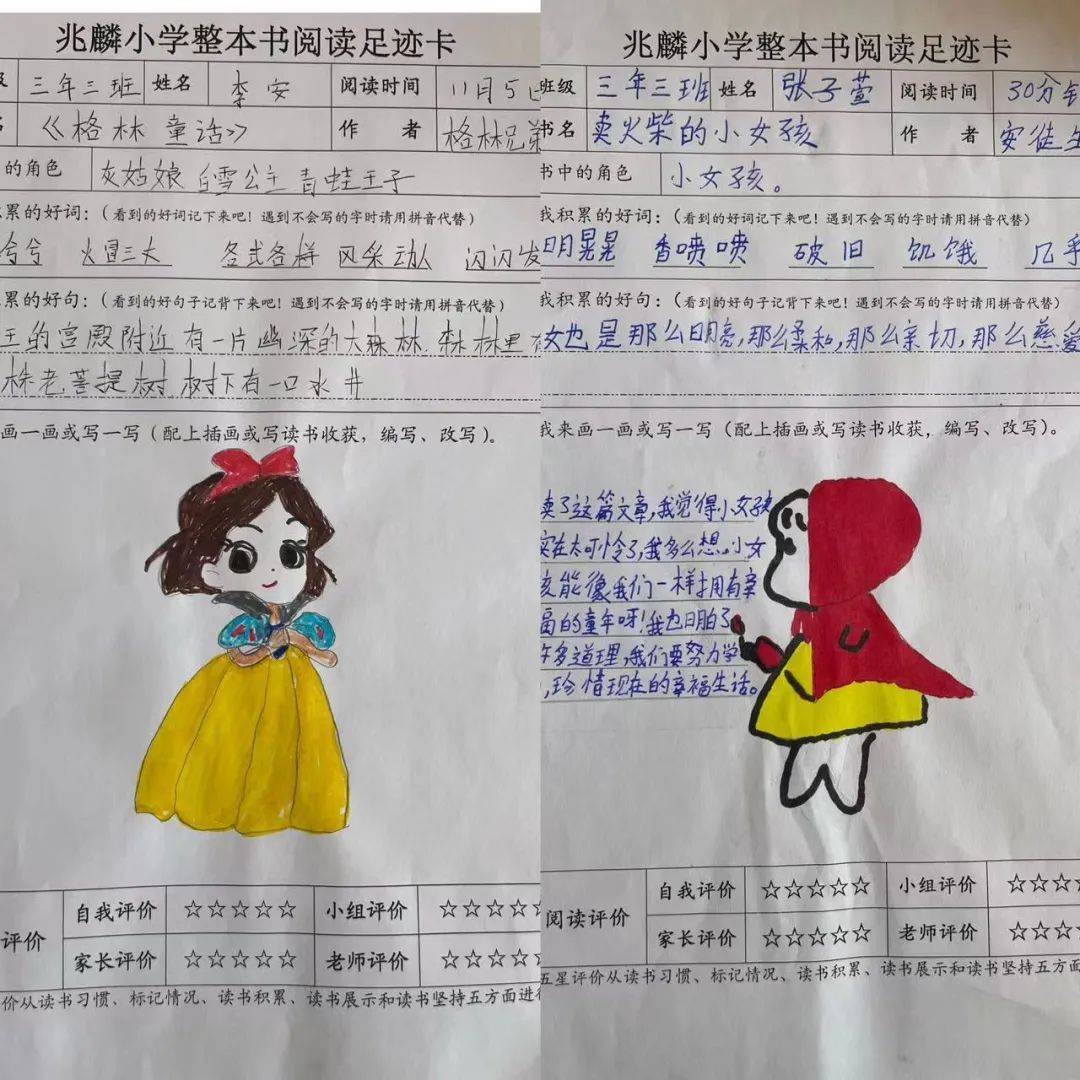 兆麟小学整本书阅读足迹卡
级 三年三班 姓名 李安 阅读时间 11月5日
名 《格林童话》 作 者 格林兄弟
的角色 灰姑娘 白雪公主 青蛙王子
累的好词：（看到的好词记下来吧！遇到不会写的字时请用拼音代替）
兮兮 火冒三丈 各式各样 风采动人 闪闪发
累的好句：（看到的好句子记背下来吧！遇到不会写的字时请用拼音代替）
王的宫殿附近有一片幽深的大森林 森林里有
株老菩提树 树下有一口水井
画一画或写一写（配上插画或写读书收获，编写、改写）。
评价 自我评价 ☆☆☆☆☆ 小组评价 ☆☆☆☆☆
家长评价 ☆☆☆☆☆ 老师评价 ☆☆☆☆☆
价从读书习惯、标记情况、读书积累、读书展示和读书坚持五方面进行
兆麟小学整本书阅读足迹卡
班级 三年三班 姓名 张子萱 阅读时间 30分钟
书名 卖火柴的小女孩 作 者 安徒生
书中的角色 小女孩。
我积累的好词：（看到的好词记下来吧！遇到不会写的字时请用拼音代替）
明晃晃 香喷喷 破旧 饥饿 几乎
我积累的好句：（看到的好句子记背下来吧！遇到不会写的字时请用拼音代替）
女也是那么明亮，那么柔和，那么亲切，那么慈爱
我来画一画或写一写（配上插画或写读书收获，编写、改写）。
读了这篇文章，我觉得小女孩
实在太可怜了，我多么想小女
孩能像我们一样拥有幸
福的童年呀！我也明白了
许多道理，我们要努力学
，珍惜现在的幸福生活。
阅读评价 自我评价 ☆☆☆☆☆ 小组评价 ☆☆☆☆
家长评价 ☆☆☆☆☆ 老师评价 ☆☆☆☆
五星评价从读书习惯、标记情况、读书积累、读书展示和读书坚持五方面